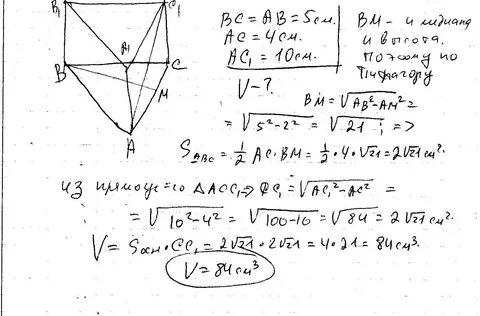 B₁ C₁
A₁
B C
M
A
BC = AB = 5см.
AC = 4см.
AC₁ = 10см.
V - ?
BM - и медиана
и высота.
Поэтому по
Пифагору
BM = √AB² - AM² =
= √5² - 2² = √21 ; =>
S_ABC = 1/2 AC · BM = 1/2 · 4 · √21 = 2√21 см².
из прямоуг-го △ACC₁ => CC₁ = √AC₁² - AC² =
= √10² - 4² = √100 - 16 = √84 = 2√21 см².
V = Sосн · CC₁ = 2√21 · 2√21 = 4 · 21 = 84 см³.
V = 84 см³